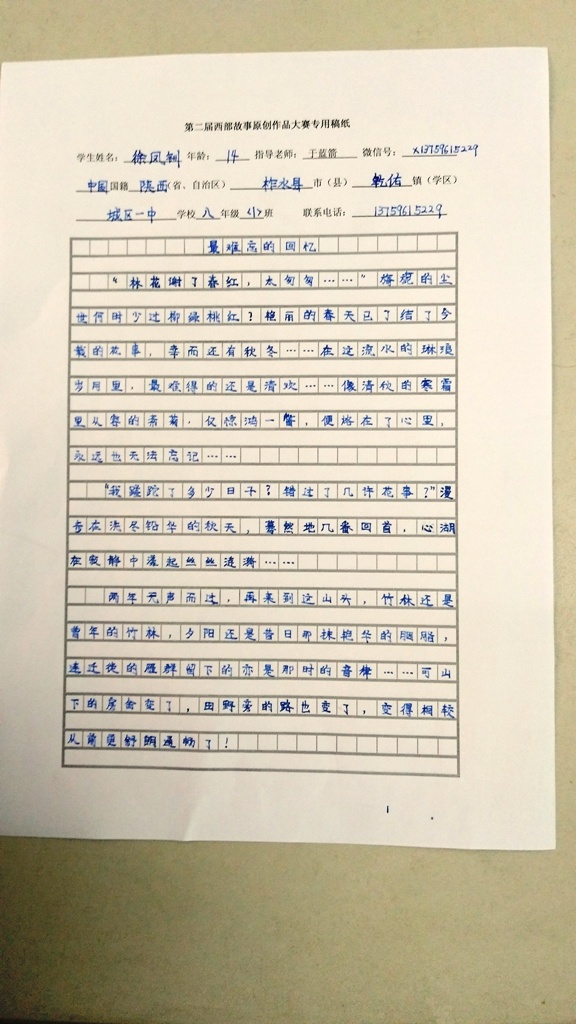 第二届西部故事原创作品大赛专用稿纸
学生姓名：徐凤 年龄：14 指导老师：于蓝箭 微信号：x13759615229
中国国籍 陕西(省、自治区) 柞水县市（县）乾佑镇（学区）
城区一中学校八年级〈1〉班 联系电话：13759615229
最难忘的回忆
“林花谢了春红，太匆匆……”旖旎的尘
世何时少过柳绿桃红？艳丽的春天已了结了今
载的花事，幸而还有秋冬……在这流水的琳琅
岁月里，最难得的还是清欢……像清秋的寒霜
里从容的素菊，仅惊鸿一瞥，便烙在了心里，
永远也无法忘记……
“我蹉跎了多少日子？错过了几许花事？”漫
步在洗尽铅华的秋天，蓦然地几番回首，心湖
在寂静中漾起丝丝涟漪……
两年无声而过，再来到这山头，竹林还是
曾年的竹林，夕阳还是昔日那抹艳华的胭脂，
连迁徙的雁群留下的亦是那时的音律……可山
下的房舍变了，田野旁的路也变了，变得相较
从前更舒朗通畅了！
1